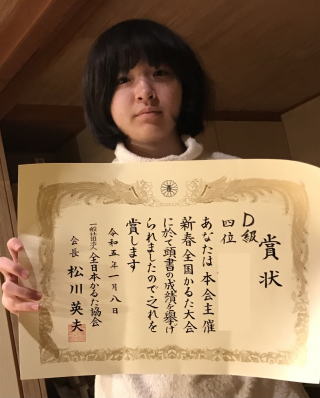 賞状
D級
四位
あなたは本会主催
新春全国かるた大会
に於て頭書の成績を挙げ
られましたので之れを
賞します
令和五年一月八日
一般社団法人 全日本かるた協会
会長 松川英夫